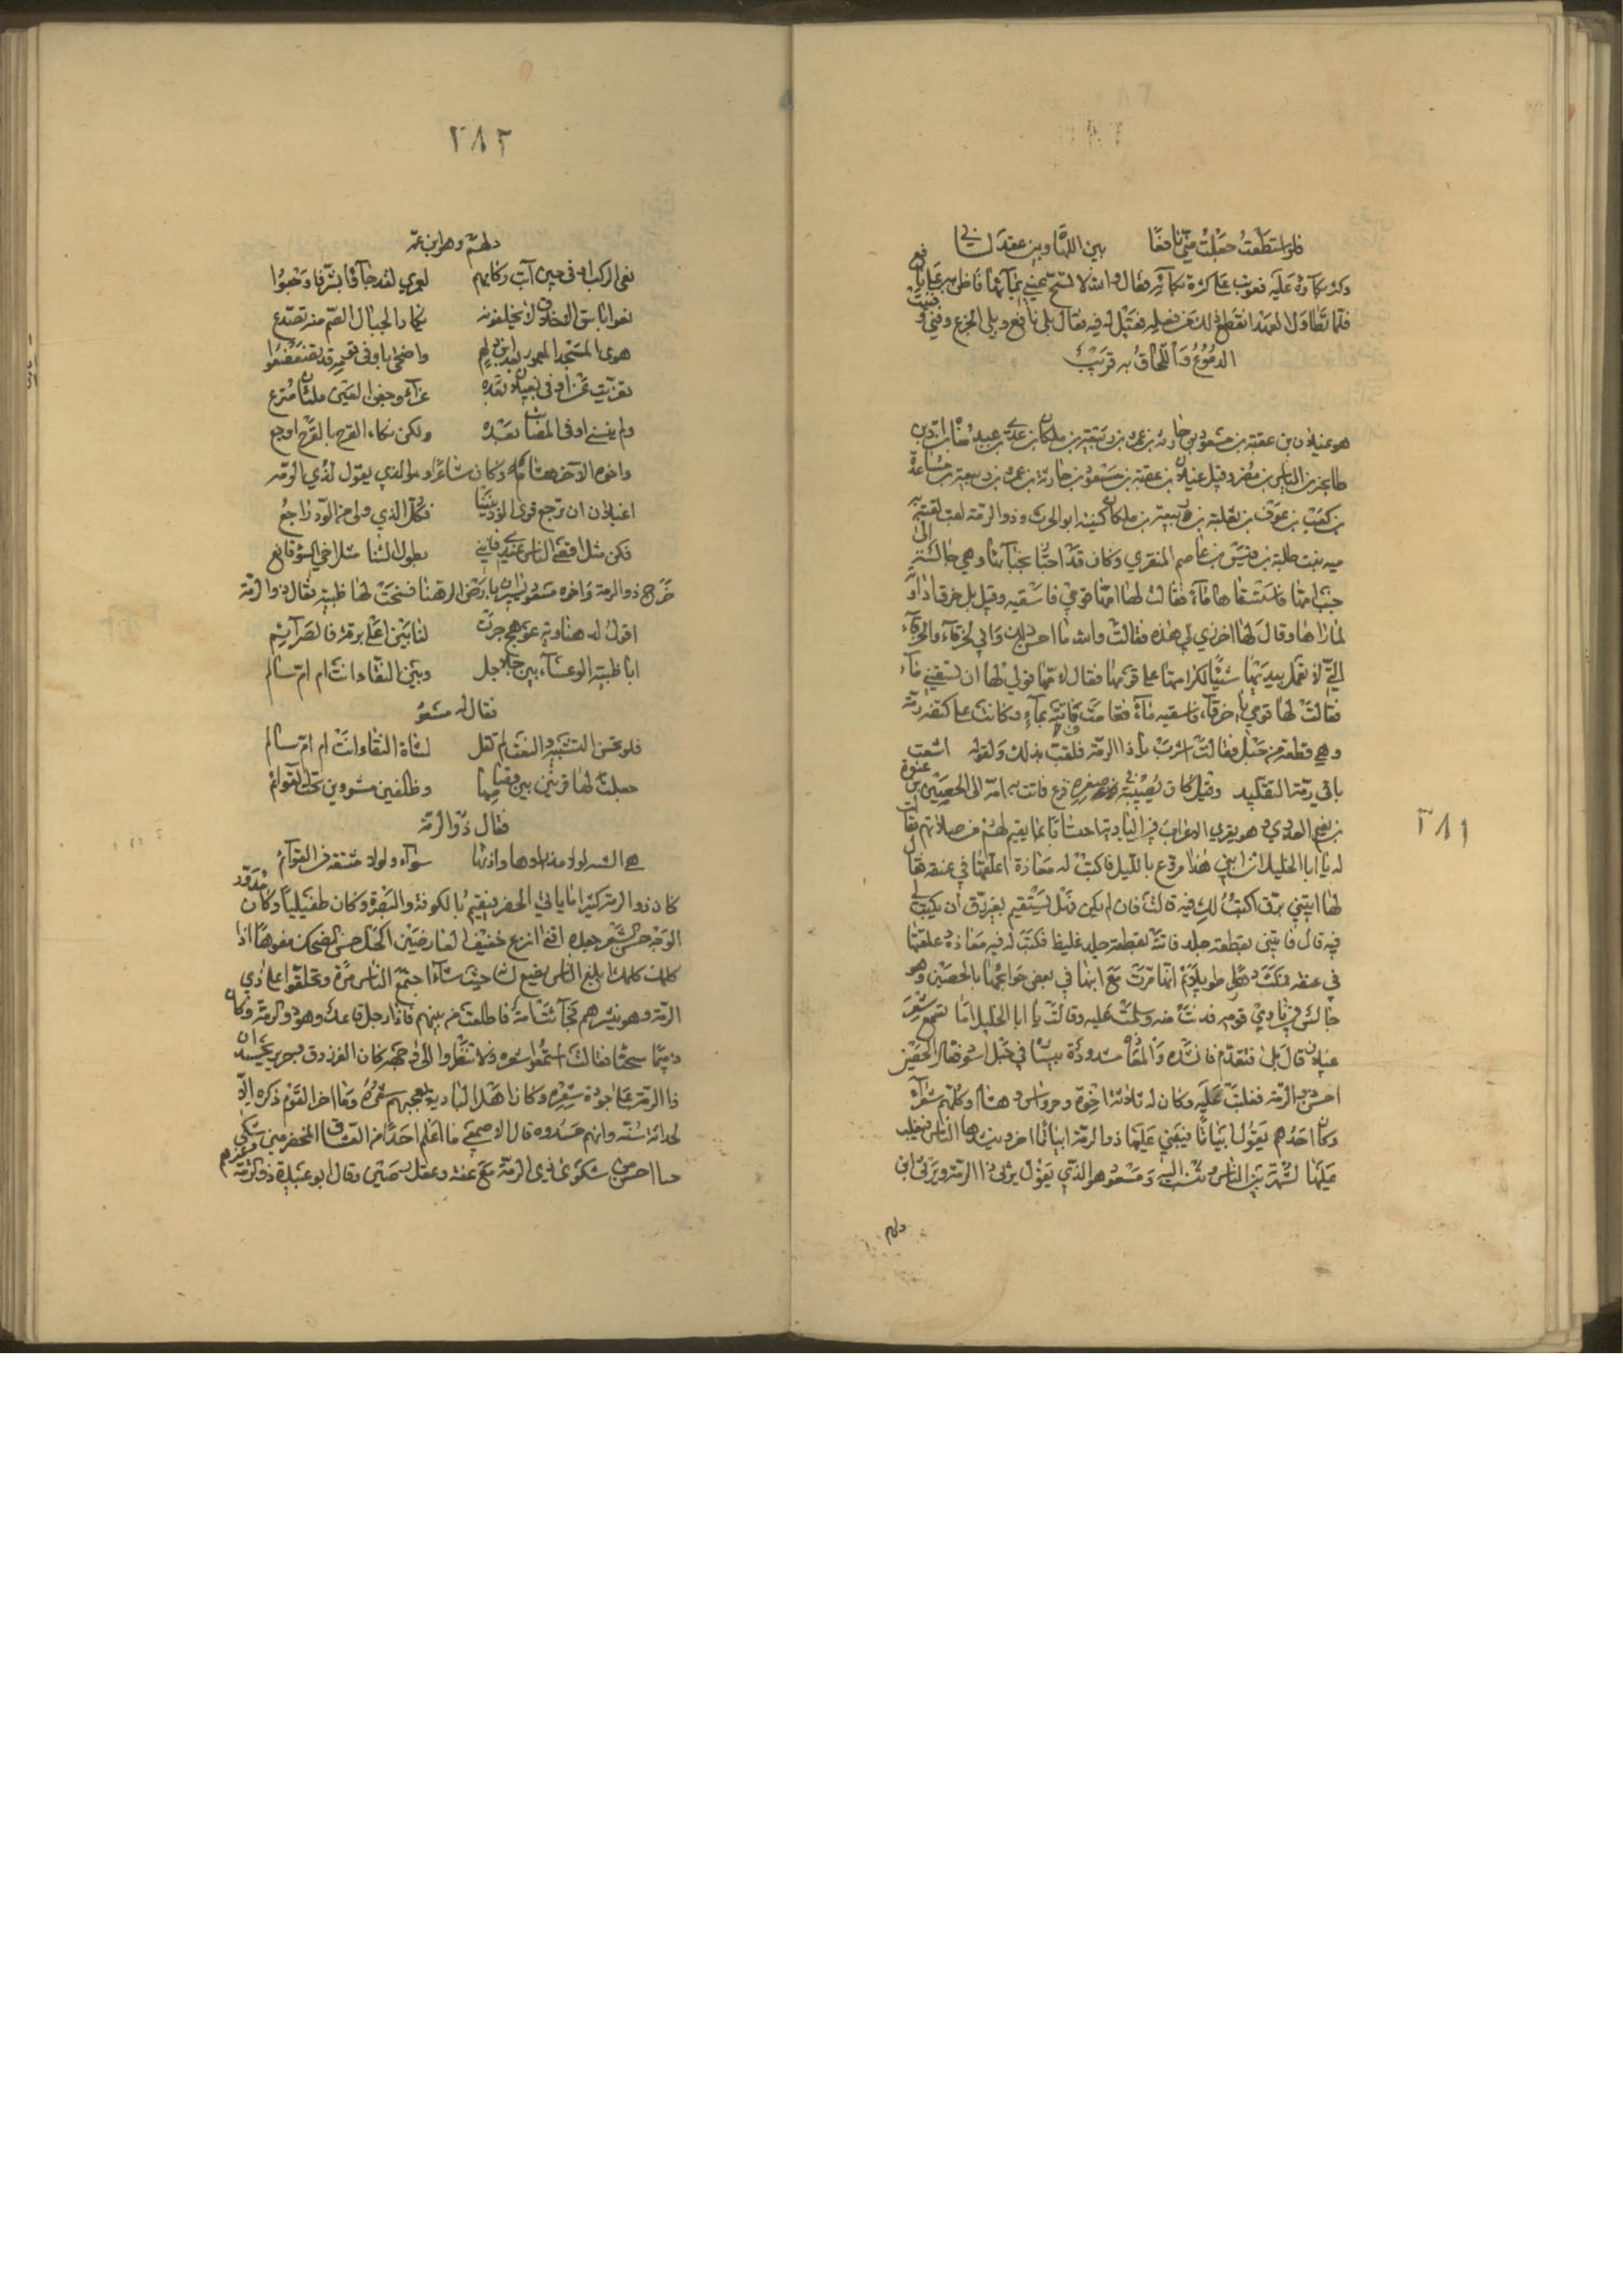 ٢٨١
فلو استطعت جعلت مني نافعا بين اللهاة وبين عقد لساني
وكثر بكاؤه عليه فعوتب على كثرة بكائه فقال والله لا تشح عيني بمائها
فلما تطاول العهد انقطع ذلك فقيل له فيه فقال بلي نافع وبلي الجزع وفني وفنيت
الدموع واللحاق به قريب
هو غيلان بن عقبة بن مسعود بن حارثة بن عمرو بن ربيعة بن ملكان بن عدي بن عبد مناة بن اد بن
طابخة بن الياس بن مضر وقيل غيلان بن عقبة بن مسعود بن حارثة بن عمرو بن ربيعة بن ساعدة
بن كعب بن عوف بن ثعلبة بن ربيعة بن ملكان كنيته ابو الحرث وذو الرمة لقب لقبته به
مية بنت طلبة بن قيس بن عاصم المنقري وكان قد اجتاز بخبائها وهي جالسة الى
جنب امها فاستسقاها ماء فقالت لها امها قومي فاسقيه وقيل بل خرق اداوته
لما راها وقال لها اخرزي لي هذه فقالت والله ما احسن ذلك واني لخرقاء والخرقاء
التي لا تعمل بيديها شيئا لكرامتها على قومها فقال لامها قولي لها ان تسقيني ماء
فقالت لها قومي يا خرقاء فاسقيه ماء فقامت فاتته بماء وكانت على كتفه رمة
وهي قطعة من حبل فقالت اشرب يا ذا الرمة فلقب بذلك ولقوله اشعث
باقي رمة التقليد وقيل كان يصيبه في صغره فزع فاتت به امه الى الحصين بن عبدة
بن نعيم العدوي وهو يقري الاعراب في البادية احتسابا بما يقيم لهم صلاتهم فقالت
له يا ابا الخليل ان ابني هذا مروع بالليل فاكتب له معاذة اعلقها في عنقه فقال
لها ايتني برق اكتب لك فيه قالت فان لم يكن فهل يستقيم بغير رق ان يكتب
فيه قال فايتني بقطعة جلد فاتته بقطعة جلد غليظ فكتب له فيه معاذة وعلقتها
في عنقه فمكث دهرا طويلا ثم انها مرت مع ابنها في بعض حوائجها بالحصين وهو
جالس في نادي قومه فدنت منه وسلمت عليه وقالت يا ابا الخليل اما تسمع شعر
غيلان قال بلى فتقدم فانشده والمعاذة مشدودة في حبل اسود فقال الحصين
احسن ذو الرمة فغلبت عليه وكان له ثلاثة اخوة وجرواس وهشام وكلهم شعراء
وكان احدهم يقول ابياتا فيبني عليها ذو الرمة ابياتا اخر وينشدها الناس فيغلب
عليها لشهرته بين الناس وتنسب اليه ومسعود هو الذي يقول يرثي ذا الرمة ويرثي ابن
دلهم
٢٨٢
دلهم وهو ابن عمه
نعى الركب اوفى حين آبت ركابهم لعمري لقد جاؤا بشر فاوجعوا
نعوا باسق الاخلاق لا يخلفونه تكاد الجبال الصم منه تصدع
هوى المسجد المعمور بعد ابن دلهم واضحى باوفى قومه قد تضعضعوا
تعزيت عن اوفى بغيلان بعده عزاء وجفن العين ملآن مترع
ولم ينسني اوفى المصيبات بعده ولكن نكاء القرح بالقرح اوجع
واخوه الاخر هشام وكان شاعرا وهو الذي يقول لذي الرمة
اغيلان ان ترجع قوى الود بيننا فكل الذي ولى من الود راجع
فكن مثل اقصى الناس عندي فانني بطول التنائي مثل اخي السوء قانع
خرج ذو الرمة واخوه مسعود يسيران بارض الدهنا فسنحت لهما ظبية فقال ذو الرمة
اقول لدهناوية عوهج جرت لنا بين اعلى برقة فالصرائم
ايا ظبية الوعساء بين جلاجل وبين النقا اانت ام ام سالم
فقال له مسعود
فلو تحسن التشبيه والنعت لم تقل لشاة النقا اانت ام ام سالم
جعلت لها قرنين بين قصاصها وظلفين مشوومين تحت القوائم
فقال ذو الرمة
هي الشبه لولا مذرواها واذنها سواء ولولا مشقة في القوائم
كان ذو الرمة كثيرا ما ياتي الحضر فيقيم بالكوفة والبصرة وكان طفيليا وكان مدور
الوجه حسن الشعر جعده اقنى انزع خفيف العارضين اكحل حسن الضحك مفوها اذا
كلمك كلمك ابلغ الناس يضع لسانه حيث شاء اجتمع الناس مرة وتحلقوا على ذي
الرمة وهو ينشدهم فجاءت امه فاطلعت من بينهم فاذا رجل قاعد وهو ذو الرمة وكان
دميما سحتا فقالت استمعوا شعره ولا تنظروا الى وجهه كان الفرزدق وجرير يحسدان
ذا الرمة على جودة شعره وكان اهل البادية يعجبهم شعره وما اخر القوم ذكره الا
لحداثة سنه وانهم حسدوه قال الاصمعي ما اعلم احدا من العشاق الحضرمين وغيرهم شكى
حبا احسن من شكوى ذي الرمة مع عفة وعقل رصين وقال ابو عبيدة ذو الرمة